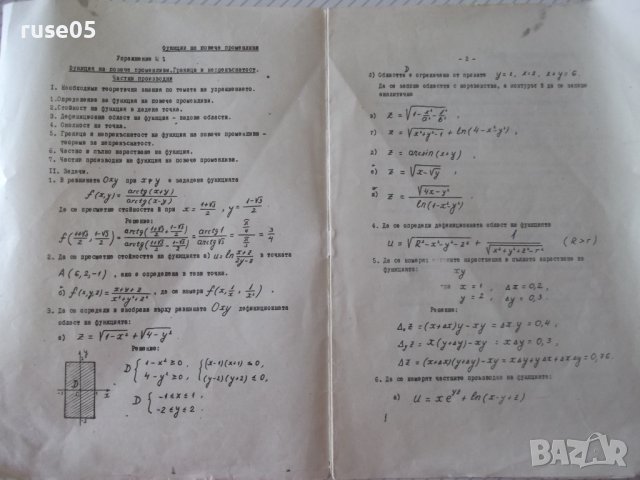 ruse05
Функции на повече променливи
Упражнение № 1
Функции на повече променливи. Граница и непрекъснатост.
Частни производни
I. Необходими теоретични знания по темата на упражнението.
1. Определение на функция на повече променливи.
2. Стойност на функция в дадена точка.
3. Дефиниционна област на функция - видове области.
4. Околност на точка.
5. Граница и непрекъснатост на функция на повече променливи -
теореми за непрекъснатост.
6. Частно и пълно нарастване на функция.
7. Частни производни на функция на повече променливи.
II. Задачи.
1. В равнината Oxy при x ≠ y е зададена функцията
f(x,y) = arctg(x+y) / arctg(x-y)
Да се пресметне стойността ѝ при x = (1+√3)/2, y = (1-√3)/2.
Решение:
f((1+√3)/2, (1-√3)/2) = arctg((1+√3)/2 + (1-√3)/2) / arctg((1+√3)/2 - (1-√3)/2) = arctg1 / arctg√3 = (π/4)/(π/3) = 3/4
2. Да се пресметне стойността на функцията а) u = ln (x+z)/(2y-z) в точката
A(6,2,-1), ако е определена в тази точка.
б) f(x,y,z) = (x+y+z)/(x²+y²+z²), да се намери f(x, 1/x, 1/x²).
3. Да се определи и изобрази върху равнината Oxy дефиниционната
област на функцията:
а) z = √(1-x²) + √(4-y²)
Решение:
D { 1-x² ≥ 0, 4-y² ≥ 0, { (x-1)(x+1) ≤ 0, (y-2)(y+2) ≤ 0,
D { -1 ≤ x ≤ 1, -2 ≤ y ≤ 2.
y
D
x
- 2 -
D
б) Областта е ограничена от правите y=x, x=2, x+y=6.
Да се запише областта с неравенства, а контурът ѝ да се запише
аналитично
в) z = √(1 - x²/a² - y²/b²),
г) z = √(x²+y²-1) + ln(4-x²-y²),
д) z = arcsin(x+y)
е) z = √(x-√y)
ж) z = √(4x-y²) / ln(1-x²-y²)
4. Да се определи дефиниционната област на функцията
u = √(R²-x²-y²-z²) + 1/√(x²+y²+z²-r²) (R>r)
5. Да се намерят частните нараствания и пълното нарастване на
функцията: xy
при x = 1, Δx = 0,2,
y = 2, Δy = 0,3.
Δₓz = (x+Δx)y - xy = Δx y = 0,4,
Δᵧz = x(y+Δy) - xy = xΔy = 0,3,
Δz = (x+Δx)(y+Δy) - xy = xΔy + yΔx + ΔxΔy = 0,76.
6. Да се намерят частните производни на функцията:
а) u = xe^(yz) + ln(x-y+z)
BAZAR